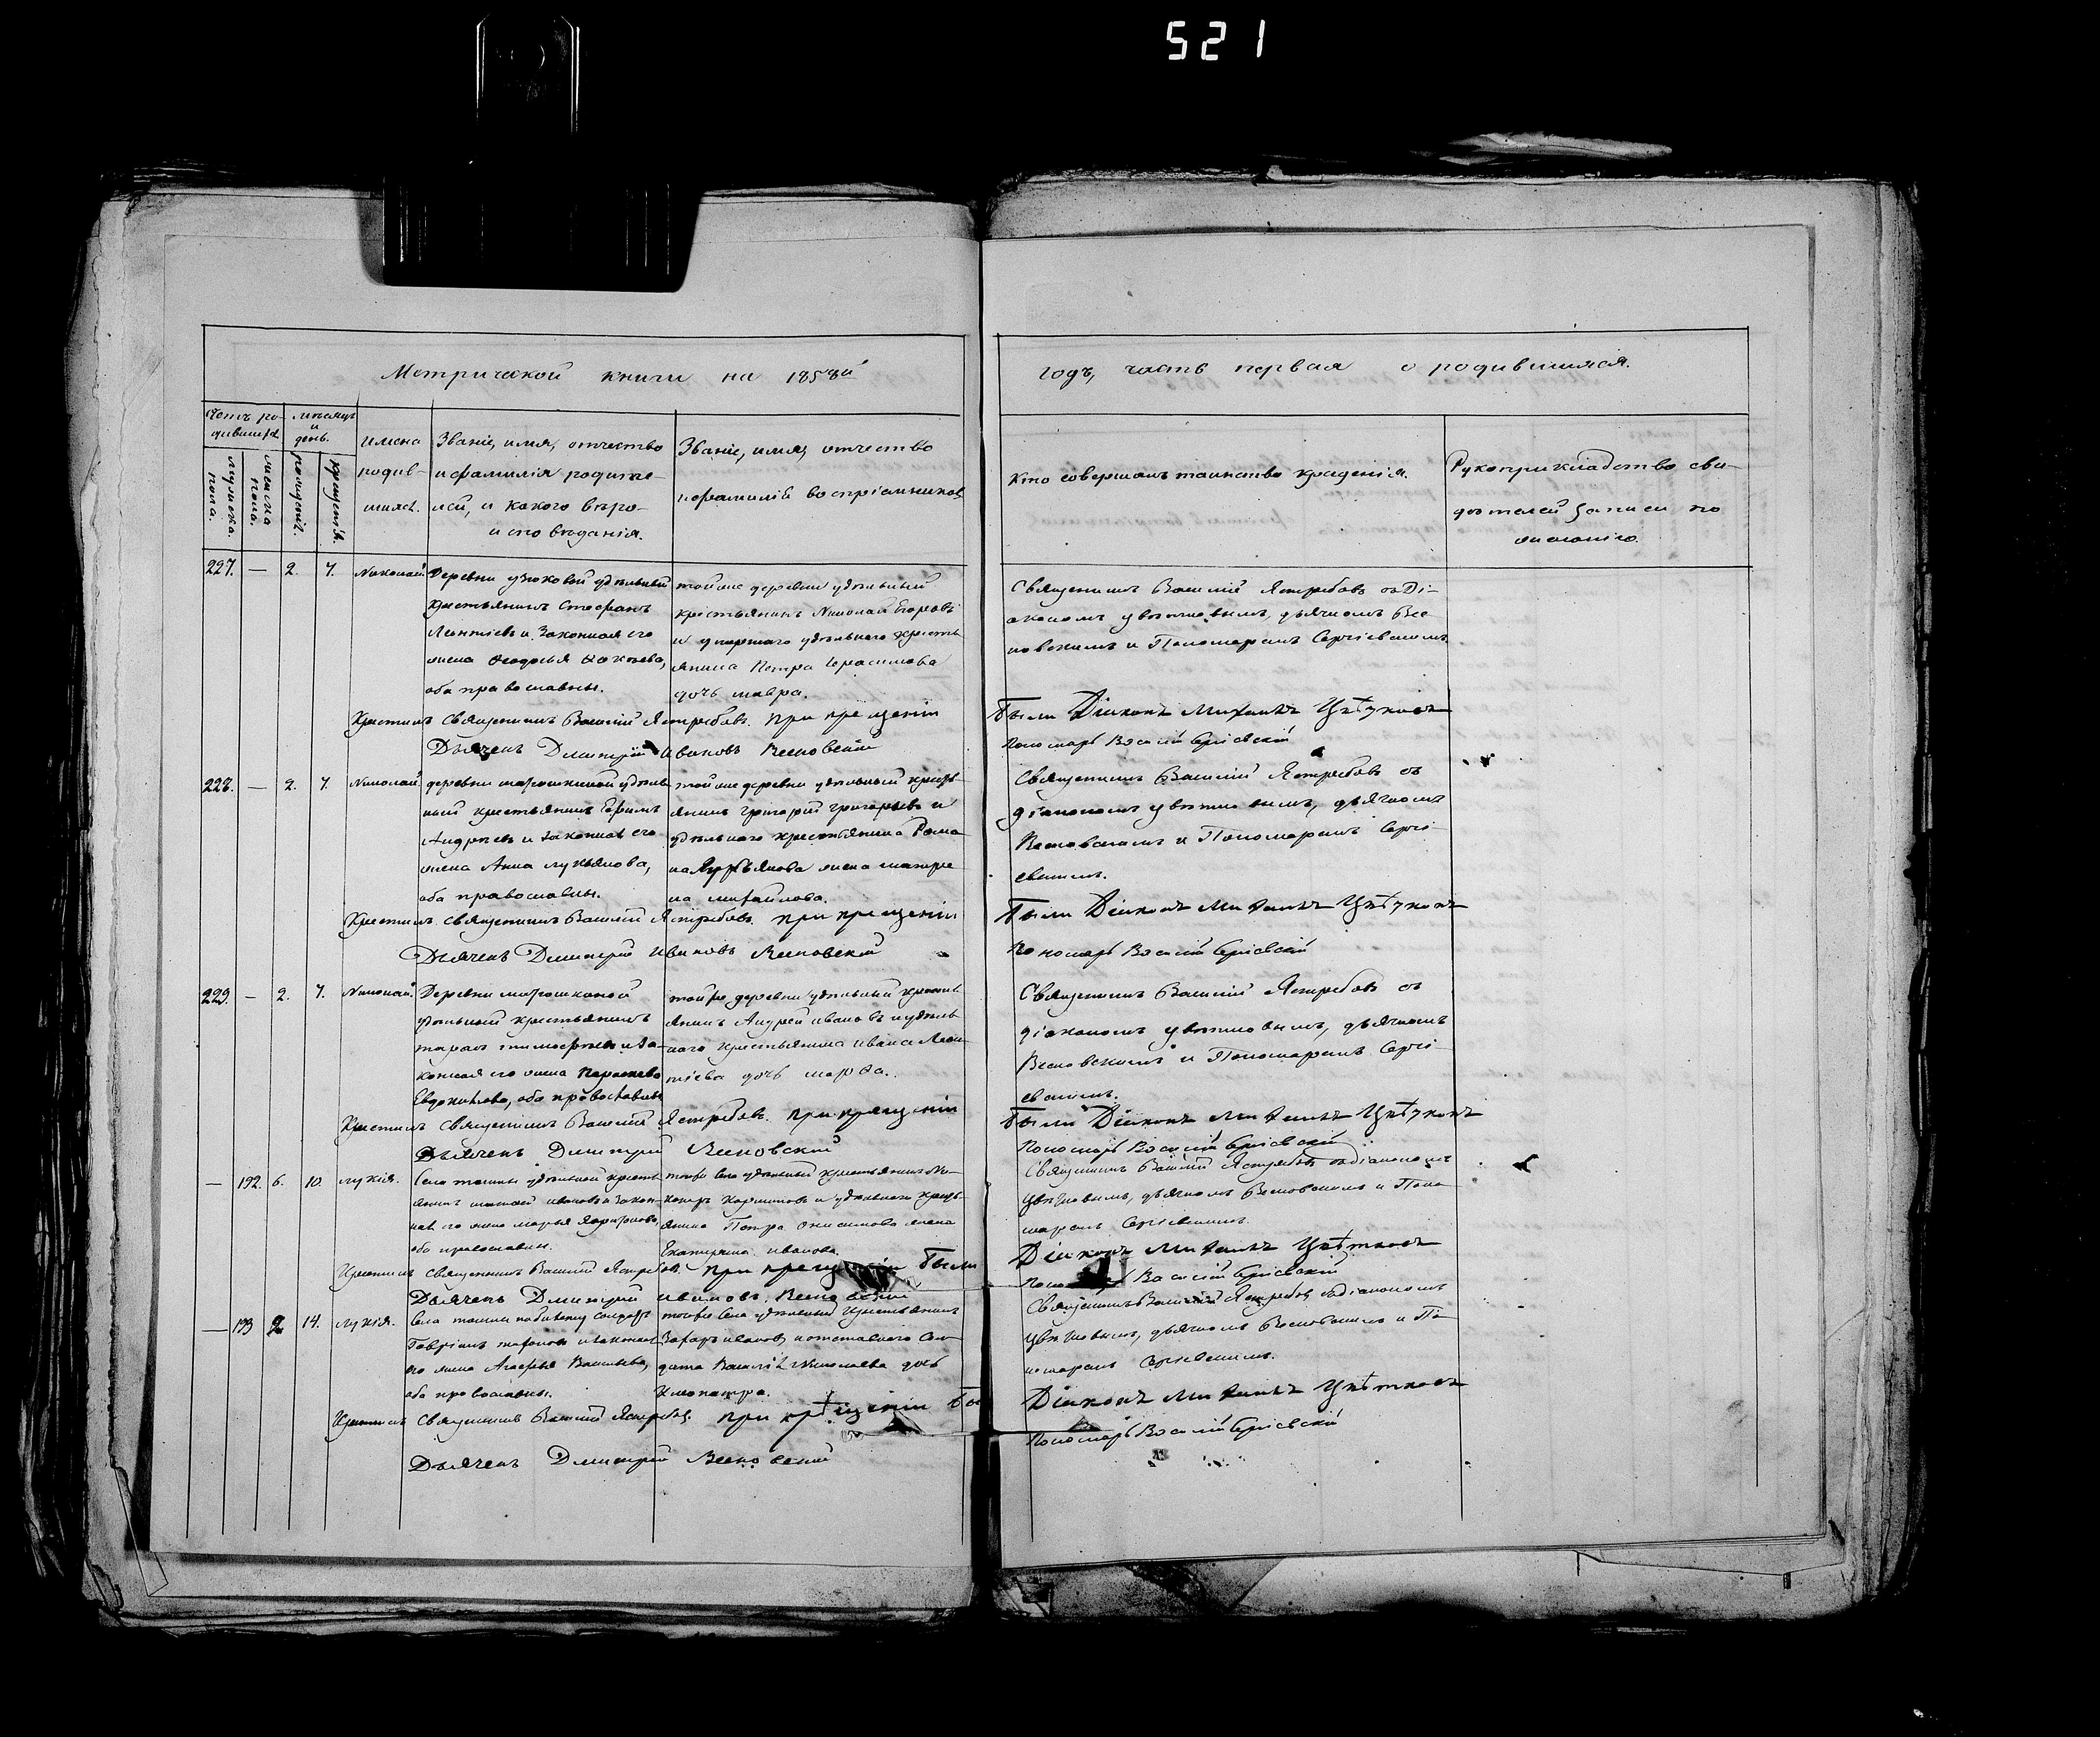 521
Метрической книги на 1858й
годъ, часть первая о родившихся.
Счетъ родившихся.
мѣсяцъ и день.
мужеска пола.
женска пола.
рожденія.
крещенія.
имена родившихся.
Званіе, имя, отчество
и фамилія родите-
лей, и какого вѣро-
исповѣданія.
Званіе, имя, отчество
и фамилія воспріемниковъ
Кто совершалъ таинство крещенія.
Рукоприкладство сви-
дѣтелей записи по
желанію.
227. — 2. 7. Николай.
Деревни удѣльный
крестьянинъ Стефанъ
Леонтіевъ и законная его
жена Ѳеодосья
оба православны.
тойже деревни удѣльный
крестьянинъ Николай Егоровъ
и умершаго удѣльнаго кресть
янина Петра Герасимова
дочь мавра.
Священникъ Василій Ястребовъ съ Ді-
акономъ Цвѣтковымъ, дьячкомъ Вес
новскимъ и Пономаремъ Сергіевскимъ
Крестилъ священникъ Василій Ястребовъ. При крещеніи
Были Діаконъ Михаилъ Цвѣтковъ
Дьячекъ Димитрій Ивановъ Весновскій
Пономарь Василій Сергіевскій
228. — 2. 7. Николай
деревни удѣль
ный крестьянинъ Ефимъ
Андреевъ и законная его
жена Анна лукьянова,
оба православны.
тойже деревни удѣльный кресть
янинъ григорій григорьевъ и
удѣльнаго крестьянина Рома
на Лукьянова жена матре
на михайлова.
Священникъ Василій Ястребовъ съ
діакономъ Цвѣтковымъ, дьячкомъ
Весновскимъ и Пономаремъ Сергі-
евскимъ.
Крестилъ священникъ Василій Ястребовъ. При крещеніи
Были Діаконъ Михаилъ Цвѣтковъ
Дьячекъ Димитрій Ивановъ Весновскій
Пономарь Василій Сергіевскій
229. — 2. 7. Николай.
Деревни
удѣльный крестьянинъ
тарасъ тимофеевъ и за-
конная его жена
Евдокимова, оба православны
тойже деревни удѣльный кресть
янинъ Андрей ивановъ и удѣль
наго крестьянина ивана Леон
тіева дочь марѳа.
Священникъ Василій Ястребовъ съ
діакономъ Цвѣтковымъ, дьячкомъ
Весновскимъ и Пономаремъ Сергі-
евскимъ.
Крестилъ Священникъ Василій Ястребовъ. При крещеніи
Были Діаконъ Михаилъ Цвѣтковъ
Дьячекъ Димитрій Весновскій
Пономарь Василій Сергіевскій
— 192. 6. 10. лукія.
Села удѣльный кресть
янинъ ивановъ и закон-
ная его жена марья
оба православны.
тогоже села удѣльный крестьянинъ Ни-
и удѣльнаго кресть-
янина Петра Онисимова жена
Екатерина иванова.
Священникъ Василій Ястребовъ съ діакономъ
Цвѣтковымъ, дьячкомъ Весновскимъ и Поно
маремъ Сергіевскимъ.
Крестилъ священникъ Василій Ястребовъ. При крещеніи Были
Діаконъ Михаилъ Цвѣтковъ
Дьячекъ Димитрій Ивановъ Весновскій
Василій Сергіевскій
— 193 2 14. лукія.
Села солдатъ
Гавріилъ и законная
его жена Агафья Васильева,
оба православны.
тогоже села удѣльный крестьянинъ
Захаръ ивановъ и отставнаго Сол-
дата Василія Николаева дочь
Клеопатра.
Священникъ Василій Ястребовъ съ діакономъ
Цвѣтковымъ, дьячкомъ Весновскимъ и По
номаремъ Сергіевскимъ.
Крестилъ Священникъ Василій Ястребовъ. При крѣщеніи Бы
Діаконъ Михаилъ Цвѣтковъ
Дьячекъ Димитрій Весновскій
Пономарь Василій Сергіевскій